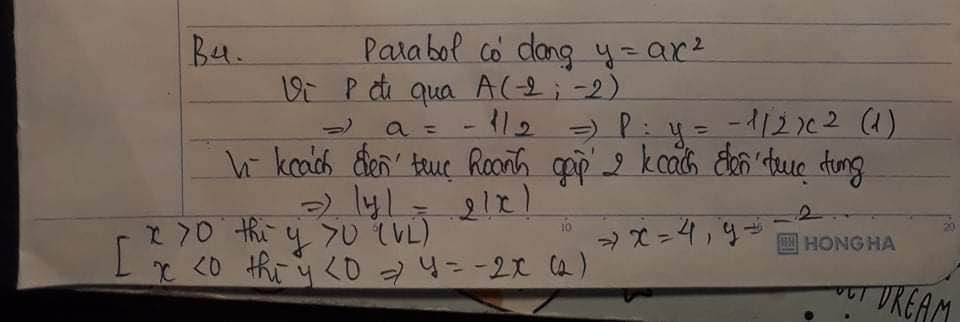 B4. Parabol có dạng y = ax²
Vì P đi qua A(-2 ; -2)
=> a = -1/2 => P : y = -1/2x² (1)
Vì kcách đến trục hoành gấp 2 kcách đến trục tung
=> |y| = 2|x|
[ x > 0 thì y > 0 (VL)
x < 0 thì y < 0 => y = -2x (2)
=> x = 4, y = -2
10
20
HONG HA
DREAM